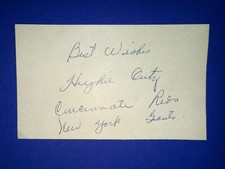 Best Wishes
Hughie Critz
Cincinnati Reds
New York Giants